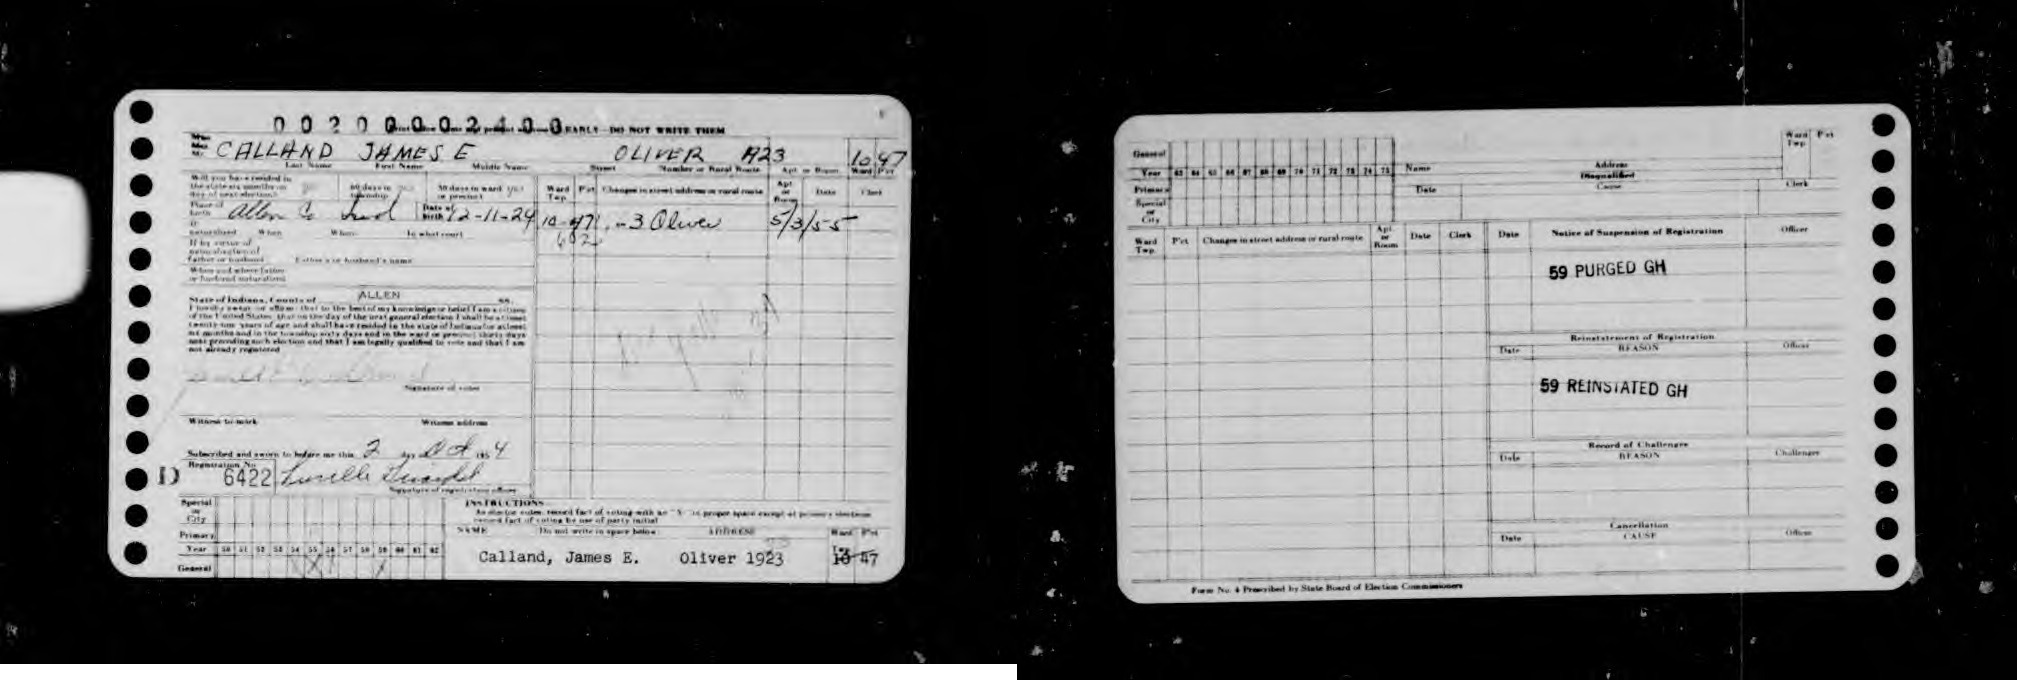 00200002400
EARLY - DO NOT WRITE THEM
CALLAND JAMES E OLIVER 1923 10 47
Last Name First Name Middle Name Street Number or Rural Route Apt. or Room Ward P'ct
Will you have resided in
the state six months on
day of next election?
60 days in
township
30 days in ward
or precinct
Ward Twp. P'ct Changes in street address or rural route Apt. or Room Date Clerk
Place of birth Allen Co Ind Date of birth 12-11-24
10 47 Oliver 5/3/55
602
If naturalized When Where In what court
If by virtue of
naturalization of
father or husband Father's or husband's name
When and where father
or husband naturalized
State of Indiana, County of ALLEN ss.
I hereby swear or affirm that to the best of my knowledge or belief I am a citizen
of the United States, that on the day of the next general election I shall be at least
twenty-one years of age and shall have resided in the state of Indiana for at least
six months and in the township sixty days and in the ward or precinct thirty days
next preceding such election and that I am legally qualified to vote and that I am
not already registered
Signature of voter
Witness to mark Witness address
Subscribed and sworn to before me this 2 day Oct 1954
D
Registration No. 6422 Lucille
Signature of registration officer
Special or City
Primary
Year 50 51 52 53 54 55 56 57 58 59 60 61 62
General
INSTRUCTIONS
As elector votes, record fact of voting with an "X" in proper space except at primary elections
record fact of voting by use of party initial
NAME Do not write in space below ADDRESS Ward P'ct
Calland, James E. Oliver 1923 10 47
General
Year 63 64 65 66 67 68 69 70 71 72 73 74 75
Primary
Special or City
Name Address Ward Twp. P'ct
Disqualified
Date Cause Clerk
Ward Twp. P'ct Changes in street address or rural route Apt. or Room Date Clerk
Date Notice of Suspension of Registration Officer
59 PURGED GH
Reinstatement of Registration
Date REASON Officer
59 REINSTATED GH
Record of Challenges
Date REASON Challenger
Cancellation
Date CAUSE Officer
Form No. 4 Prescribed by State Board of Election Commissioners